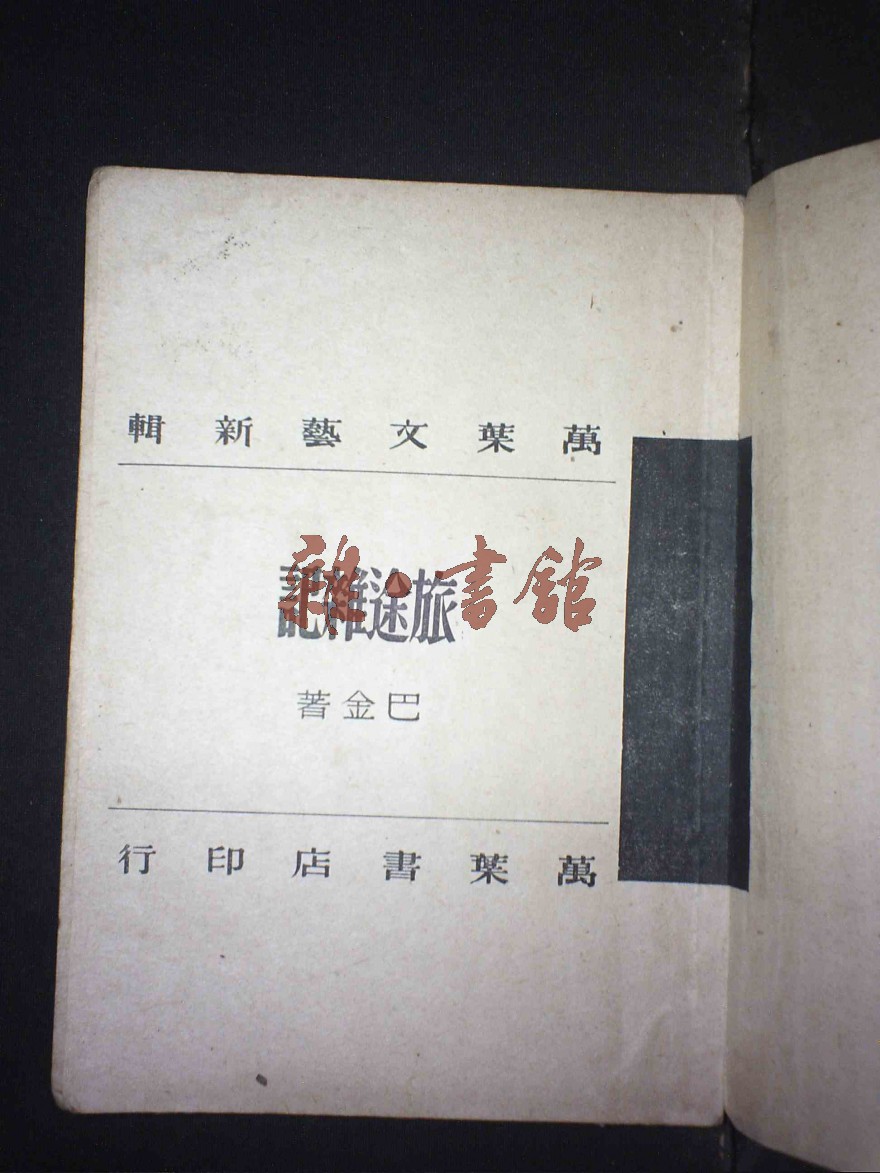 萬葉文藝新輯
旅途雜記
雜·書館
巴金著
萬葉書店印行